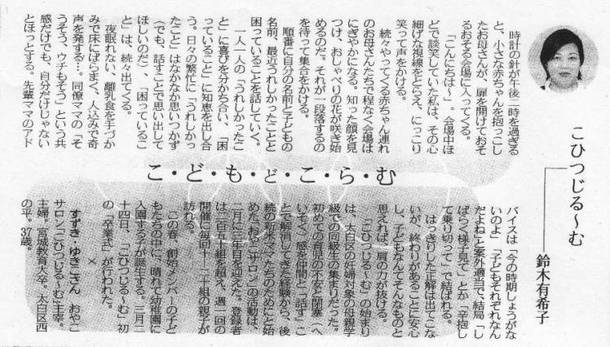 こひつじる〜む
鈴木有希子
時計の針が午後二時を過ぎる
と、小さな赤ちゃんを抱っこし
たお母さんが、扉を開けておそ
るおそる会場に入ってくる。
「こんにちはー」。会場中ほ
どで談笑していた私は、その心
細げな視線をとらえ、にっこり
笑って声をかける。
続々やってくる赤ちゃん連れ
のお母さんたちで程なく会場は
にぎやかになる。知った顔を見
つけ、おしゃべりの花が咲き始
めるのだ。それが一段落するの
を待って集合をかける。
順番に自分の名前と子どもの
名前、最近うれしかったことと
困っていることを話していく。
一人一人の「うれしかったこ
と」に喜びを分かち合い、「困
っていること」に知恵を出し合
う。日々の繁忙に「うれしかっ
たこと」はなかなか思いつかず
(でも、話すことで思い出して
ほしいのだ)、「困っているこ
と」は、続々出てくる。
夜眠れない、離乳食を手づか
みで床にばらまく、人込みで奇
声を発する…。同僚ママの「そ
うそう、ウチもそう」という共
感だけでも、自分だけじゃない
とほっとする。先輩ママのアド
こ・ど・も・ど・こ・ら・む
バイスは「今の時期しょうがな
いのよ」「子どもそれぞれなん
だよね」と案外適当で、結局「し
ばらく様子見て」とか「辛抱し
て乗り切って」で結ばれる。
はっきりした正解は出てこな
いが、終わりがあることに安心
し、子どもなんてそんなものと
思えれば、肩の力が抜ける。
「こひつじる〜む」の始まり
は、太白区の妊婦対象の母親学
級での同級生の集まりだった。
初めての育児の不安と閉塞(へ
いそく)感を仲間と「話す」こ
とで解消してきた経験から、後
続の新米ママたちのためにと始
めた"おやこサロン"の活動は、
二月に三年目を迎えた。登録者
は二百五十組を超え、週一回の
開催に毎回十〜二十組の親子が
訪れる。
この春、創始メンバーの子ど
もたちの中に、晴れて幼稚園に
入園する子が誕生する。三月二
十四日、「こひつじる〜む」初
の「卒業式」が行われた。
×
すずき・ゆきこさん おやこ
サロン「こひつじる〜む」主宰。
主婦。宮城教育大卒。太白区西
の平。37歳。